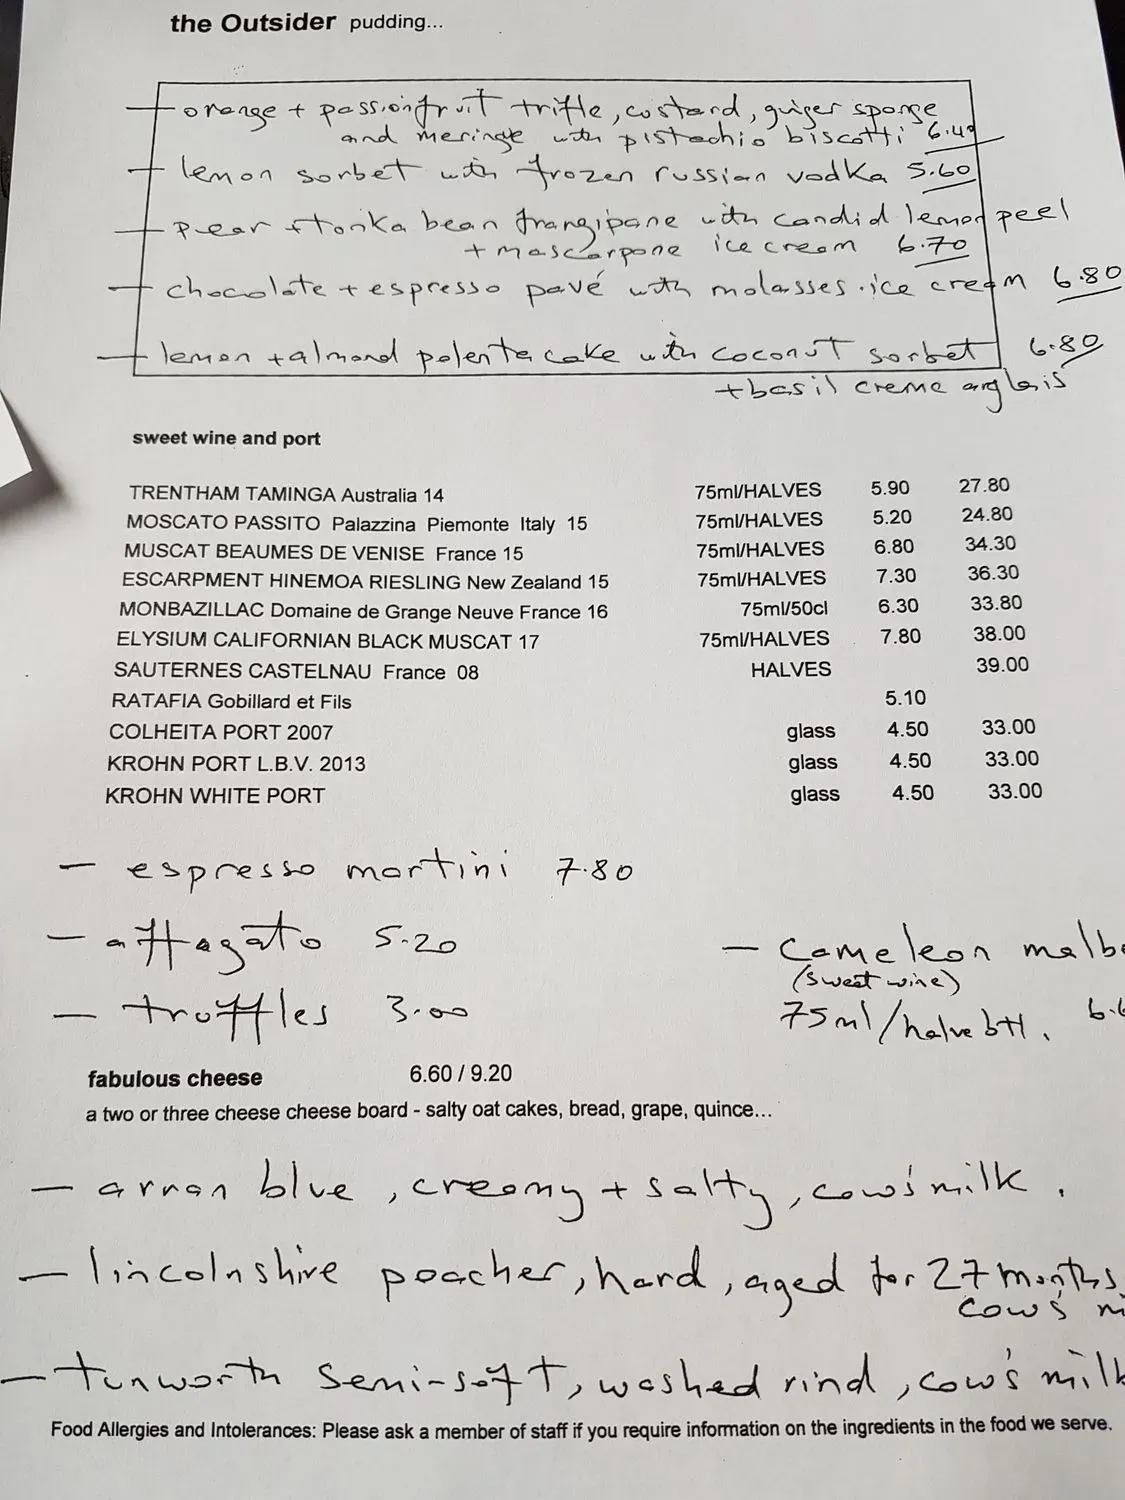 the Outsider pudding...
— orange + passionfruit trifle, custard, ginger sponge
and meringe with pistachio biscotti 6.40
— lemon sorbet with frozen russian vodka 5.60
— pear + tonka bean frangipane with candid lemon peel
+ mascarpone ice cream 6.70
— chocolate + espresso pavé with molasses ice cream 6.80
— lemon + almond polenta cake with coconut sorbet 6.80
+ basil creme anglais
sweet wine and port
TRENTHAM TAMINGA Australia 14 75ml/HALVES 5.90 27.80
MOSCATO PASSITO Palazzina Piemonte Italy 15 75ml/HALVES 5.20 24.80
MUSCAT BEAUMES DE VENISE France 15 75ml/HALVES 6.80 34.30
ESCARPMENT HINEMOA RIESLING New Zealand 15 75ml/HALVES 7.30 36.30
MONBAZILLAC Domaine de Grange Neuve France 16 75ml/50cl 6.30 33.80
ELYSIUM CALIFORNIAN BLACK MUSCAT 17 75ml/HALVES 7.80 38.00
SAUTERNES CASTELNAU France 08 HALVES 39.00
RATAFIA Gobillard et Fils 5.10
COLHEITA PORT 2007 glass 4.50 33.00
KROHN PORT L.B.V. 2013 glass 4.50 33.00
KROHN WHITE PORT glass 4.50 33.00
— espresso martini 7.80
— affagato 5.20
— truffles 3.00
— Cameleon malbe
(sweet wine)
75ml/halve btl.
fabulous cheese 6.60 / 9.20
a two or three cheese cheese board - salty oat cakes, bread, grape, quince...
— arran blue, creamy + salty, cow's milk.
— lincolnshire poacher, hard, aged for 27 months,
cow's mi
— tunworth semi-soft, washed rind, cow's milk
Food Allergies and Intolerances: Please ask a member of staff if you require information on the ingredients in the food we serve.